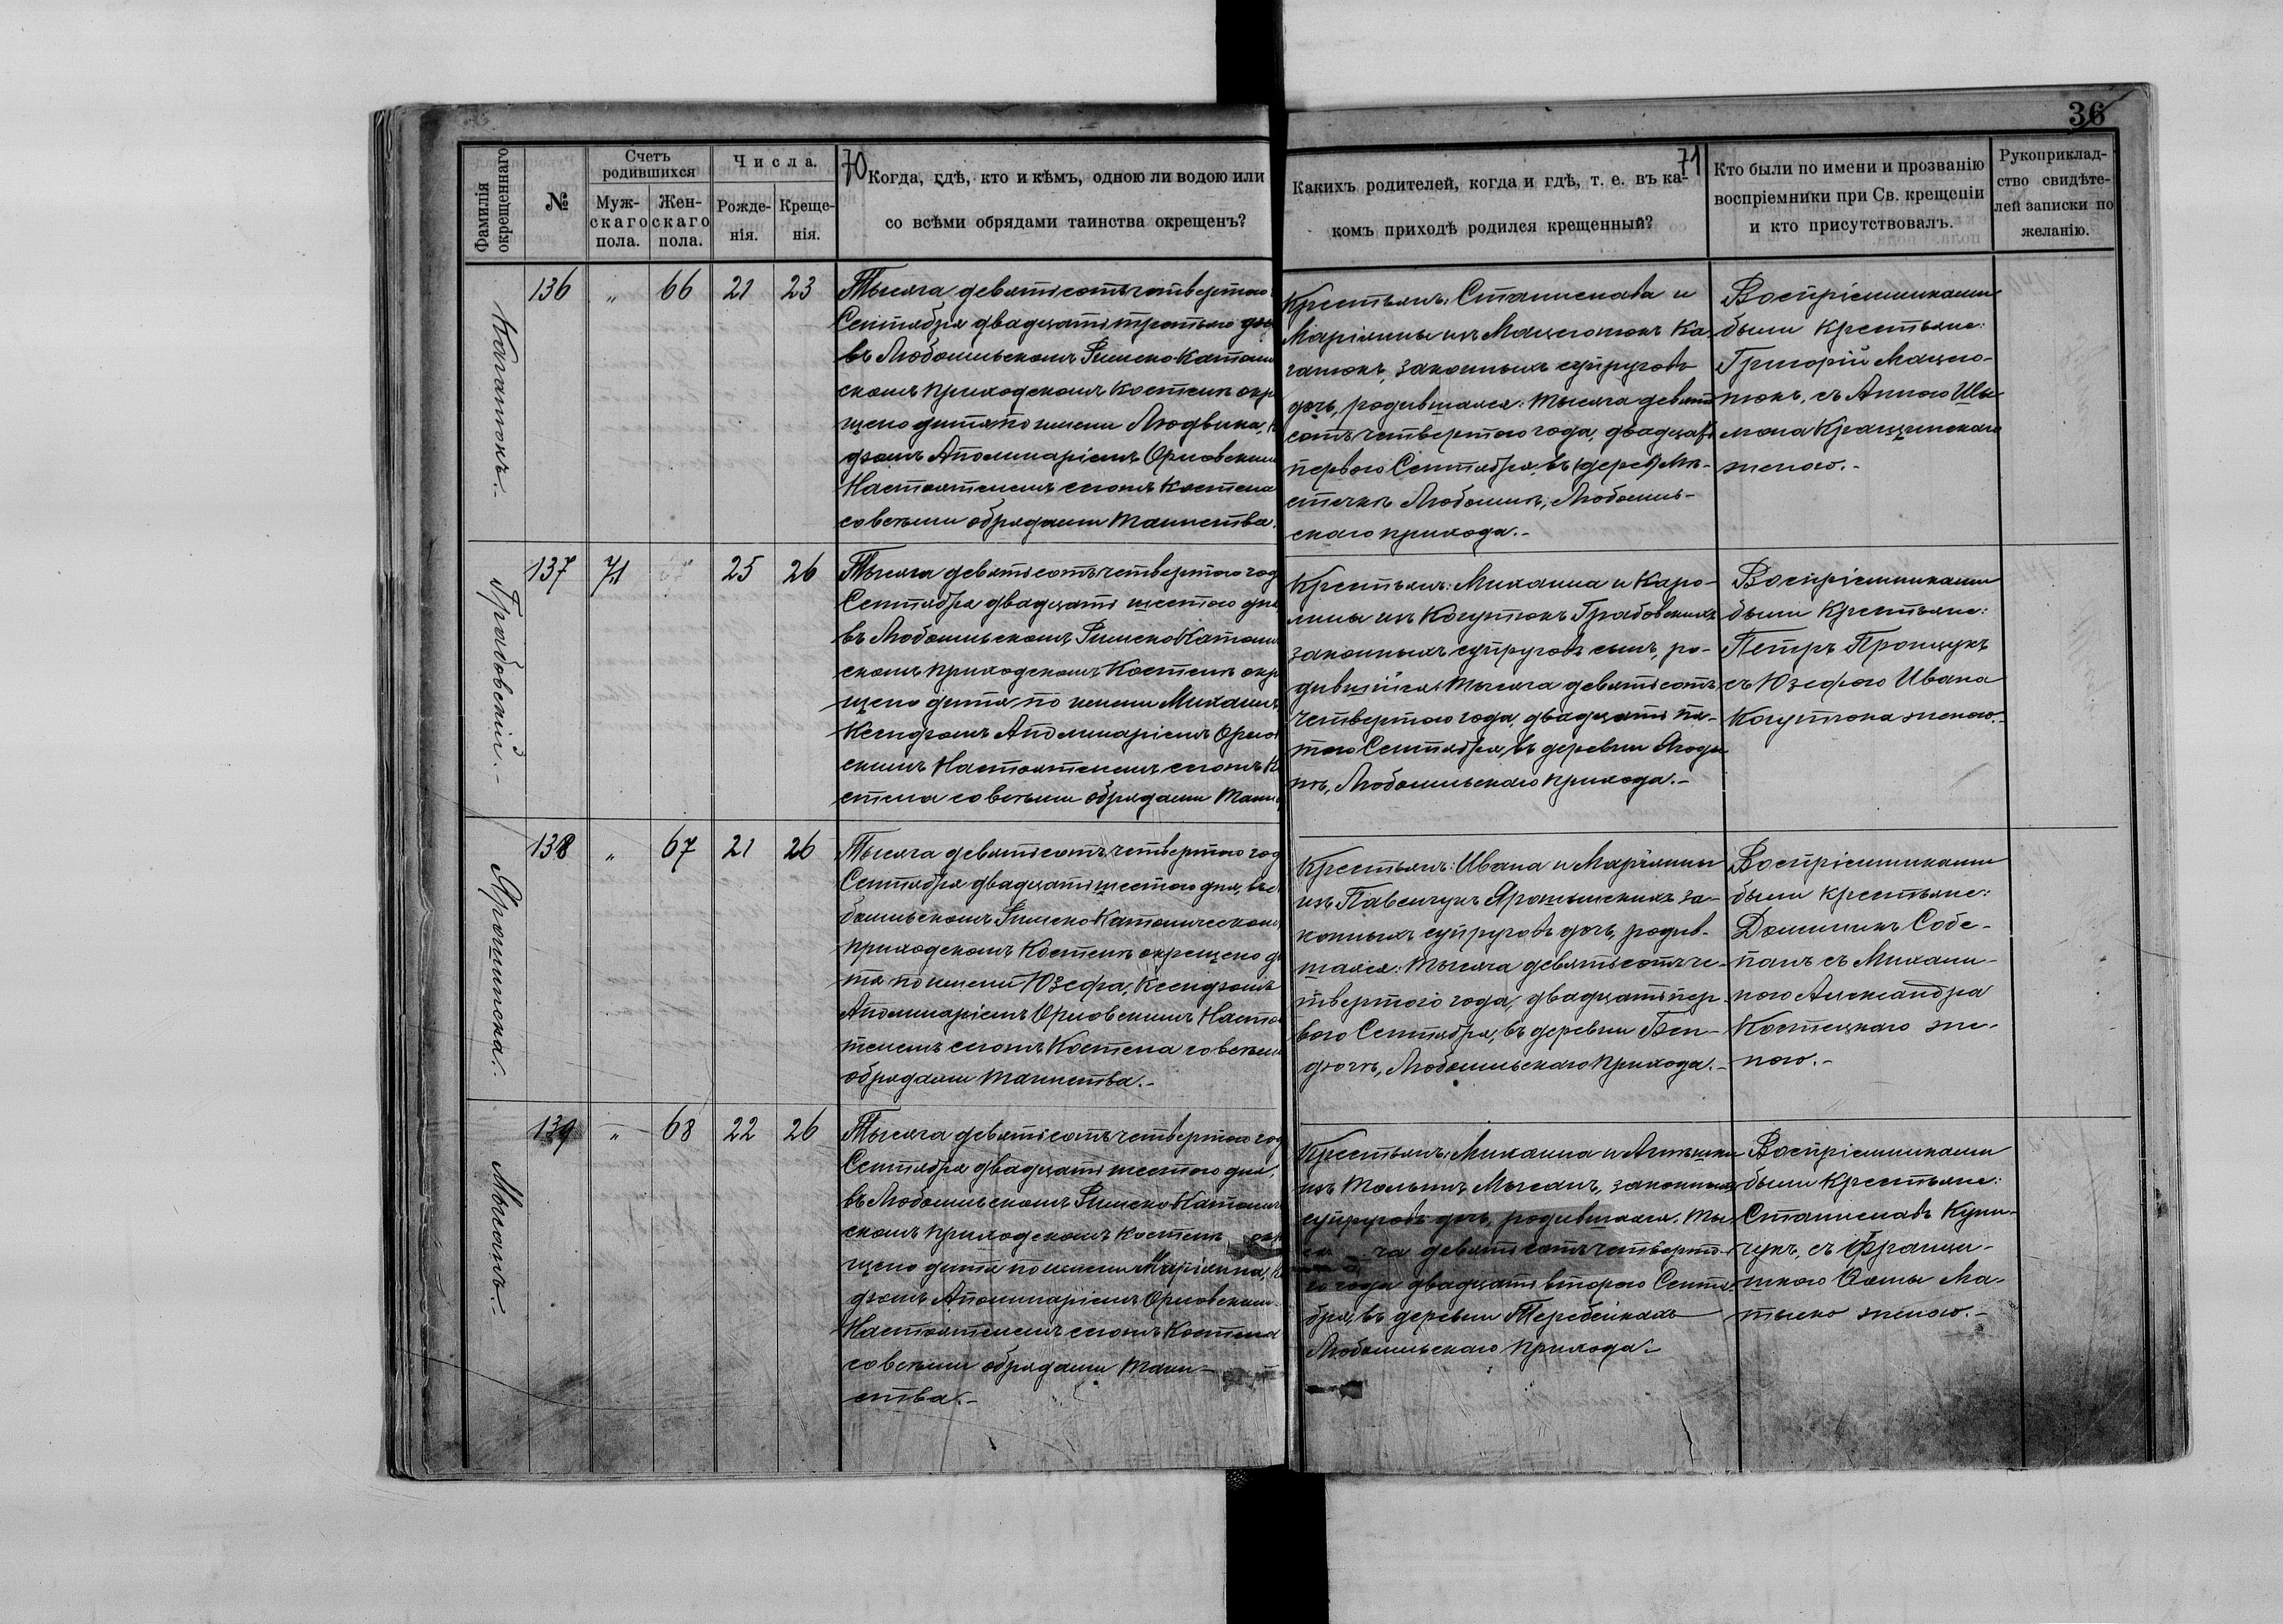 36
70
71
Фамилія окрещеннаго
№
Счетъ родившихся
Муж-скаго пола.
Жен-скаго пола.
Числа.
Рожде-нія.
Креще-нія.
Когда, гдѣ, кто и кѣмъ, одною ли водою или
со всѣми обрядами таинства окрещенъ?
Какихъ родителей, когда и гдѣ, т. е. въ ка-
комъ приходѣ родился крещенный?
Кто были по имени и прозванію
воспріемники при Св. крещеніи
и кто присутствовалъ.
Рукоприклад-
ство свидѣте-
лей записки по
желанію.
136 „ 66 21 23
Тысяча девятьсотъ четвертаго
Сентября двадцать третьяго дня
въ Любомльскомъ Римско Катели
скомъ приходскомъ Костелѣ окр
щено дитя по имени Людвика, К
дзомъ Аполинаріемъ Орловскимъ
Настоятелемъ сегожъ Костела
со всѣми обрядами таинства.
Крестьянъ: Станислава и
Маріянны изъ Мацегонокъ Ка-
законныхъ супруговъ
дочь, родившаяся: тысяча девять
сотъ четвертаго года, двадцать
перваго Сентября, въ (дерев) Мѣ-
стечкѣ Любомлѣ, Любомль-
скаго прихода.-
Воспріемниками
были крестьяне:
Григорій
съ Анною
женою.-
137 71 25 26
Грабовскій.-
Тысяча девятьсотъ четвертаго год
Сентября двадцать шестого дня
въ Любомльскомъ Римско Католи
скомъ приходскомъ Костелѣ окр
щено дитя по имени Михаилъ,
Ксендзомъ Аполинаріемъ Орлов
скимъ Настоятелемъ сегожъ К
стела со всѣми обрядами таин
Крестьянъ: Михаила и Каро-
лины изъ Когутюкъ Грабовскихъ
законныхъ супруговъ сынъ, ро-
дившійся: тысяча девятьсотъ
четвертаго года, двадцать пя-
таго Сентября, въ деревни Ягоди
нѣ, Любомльскаго прихода.-
Воспріемниками
были крестьяне:
Петръ Прощукъ
съ Юзефою Ивана
Когутюка женою.-
138 „ 67 21 26
Ярошинская.-
Тысяча девятьсотъ четвертаго год
Сентября двадцать шестого дня, въ
бомльскомъ Римско Католическом
приходскомъ Костелѣ окрещено д
тя по имени Юзефа, Ксендзомъ
Аполинаріемъ Орловскимъ Насто
телемъ сегожъ Костела со всѣми
обрядами таинства.-
Крестьянъ: Ивана и Маріянны
изъ Павенчукъ Ярошинскихъ за-
конныхъ супруговъ дочь, родив-
шаяся: тысяча девятьсотъ че-
твертаго года, двадцать пер-
ваго Сентября, въ деревни Бен-
дюгѣ, Любомльскаго прихода.-
Воспріемниками
были крестьяне:
Доминикъ Собе-
панъ съ Михали-
ною Александра
Костецкаго же-
ною.-
139 „ 68 22 26
Тысяча девятьсотъ четвертаго год
Сентября двадцать шестого дня,
въ Любомльскомъ Римско Католич
скомъ приходскомъ Костелѣ окр
щено дитя по имени Маріянна, К
дзомъ Аполинаріемъ Орловским
Настоятелемъ сегожъ Костела
со всѣми обрядами таин-
ства.-
Крестьянъ: Михаила и
законныхъ
супруговъ дочь, родившаяся: ты
ся ча девятьсотъ четверта-
го года двадцать второго Сентя-
бря, въ деревни Теребейкахъ
Любомльскаго прихода.-
Воспріемниками
были крестьяне:
Станиславъ Куни-
чукъ, съ Францы-
шкою Ѳомы Ма-
тыско женою.-